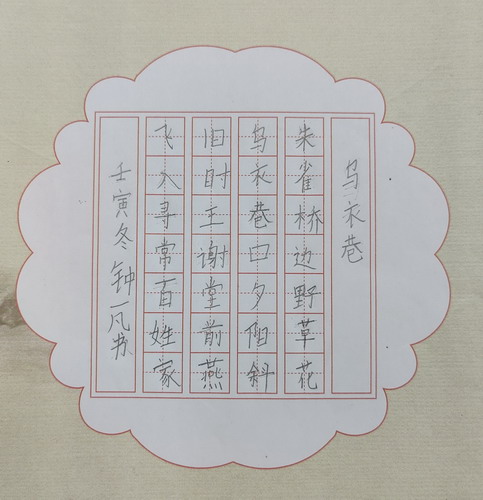 乌衣巷
朱雀桥边野草花
乌衣巷口夕阳斜
旧时王谢堂前燕
飞入寻常百姓家
壬寅冬 钟一凡书